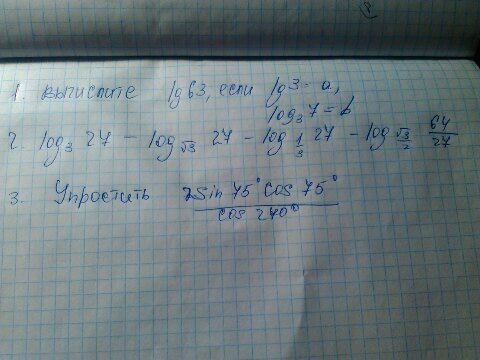 1. Вычислите lg 63, если lg 3 = a,
log₃ 7 = b
2. log₃ 27 - log_√3 27 - log_1/3 27 - log_√3/2 64/27
3. Упростить 2 sin 75° cos 75° / cos 240°